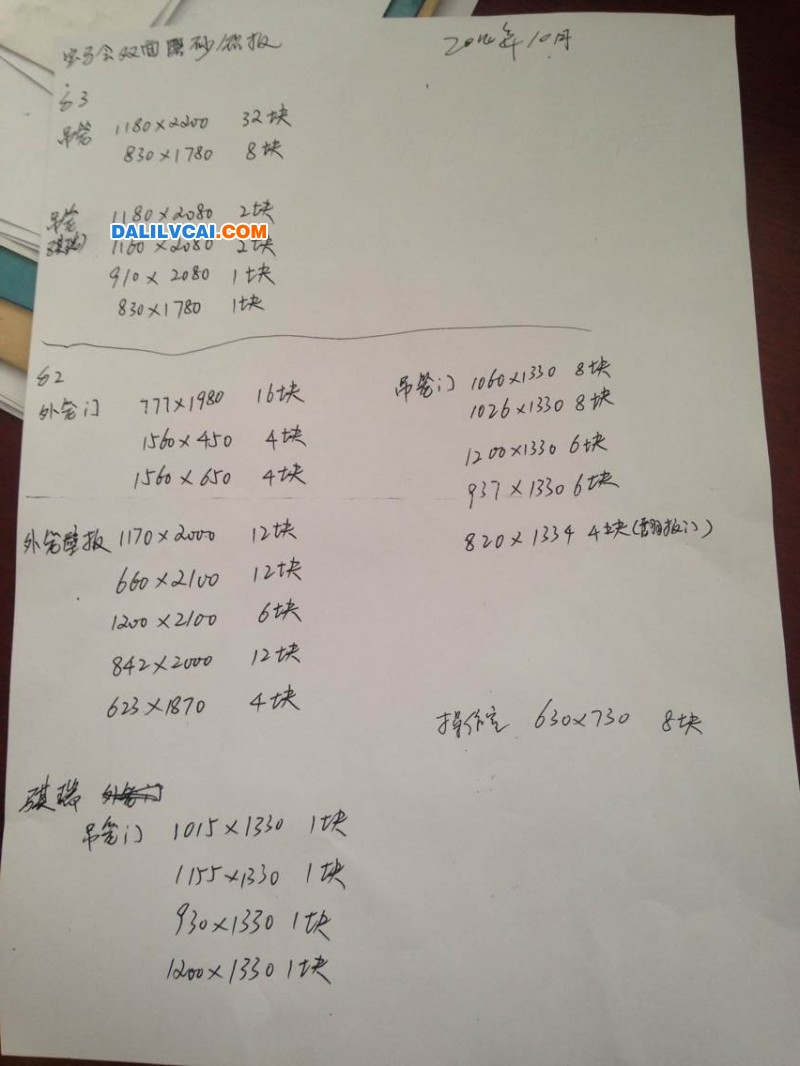 双面磨砂铝板
2014年10月
63
吊笼 1180×2200 32块
830×1780 8块
吊笼 1180×2080 2块
DALILVCAI.COM
骐瑞 1160×2080 2块
910×2080 1块
830×1780 1块
62
外笼门 777×1980 16块
1560×450 4块
1560×650 4块
吊笼门 1060×1330 8块
1026×1330 8块
1200×1330 6块
937×1330 6块
820×1334 4块(翻板门)
外笼壁板 1170×2000 12块
660×2100 12块
1200×2100 6块
842×2000 12块
623×1870 4块
操作室 630×730 8块
骐瑞 外笼门
吊笼门 1015×1330 1块
1155×1330 1块
930×1330 1块
1200×1330 1块